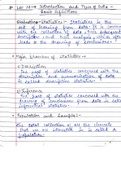 Introduction and Types of Data -
Basic Definitions
Statistics - Statistics is the
art of learning from data. It is concerned
with the collection of data, their subsequent
description and their analysis, which often
leads to the drawing of conclusions.
Major branches of statistics -
Description
The part of statistics concerned with the
description and summarization of data
is called descriptive statistics.
Inference
The part of statistics concerned with the
drawing of conclusions from data is called
inferential statistics.
Population and Sample -
The total collection of all the elements
that is called a
population.